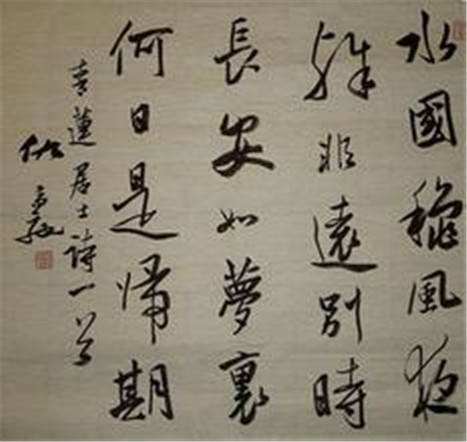 水國穐風夜
殊非遠別時
長安如夢裏
何日是帰期
青蓮居士詩一首